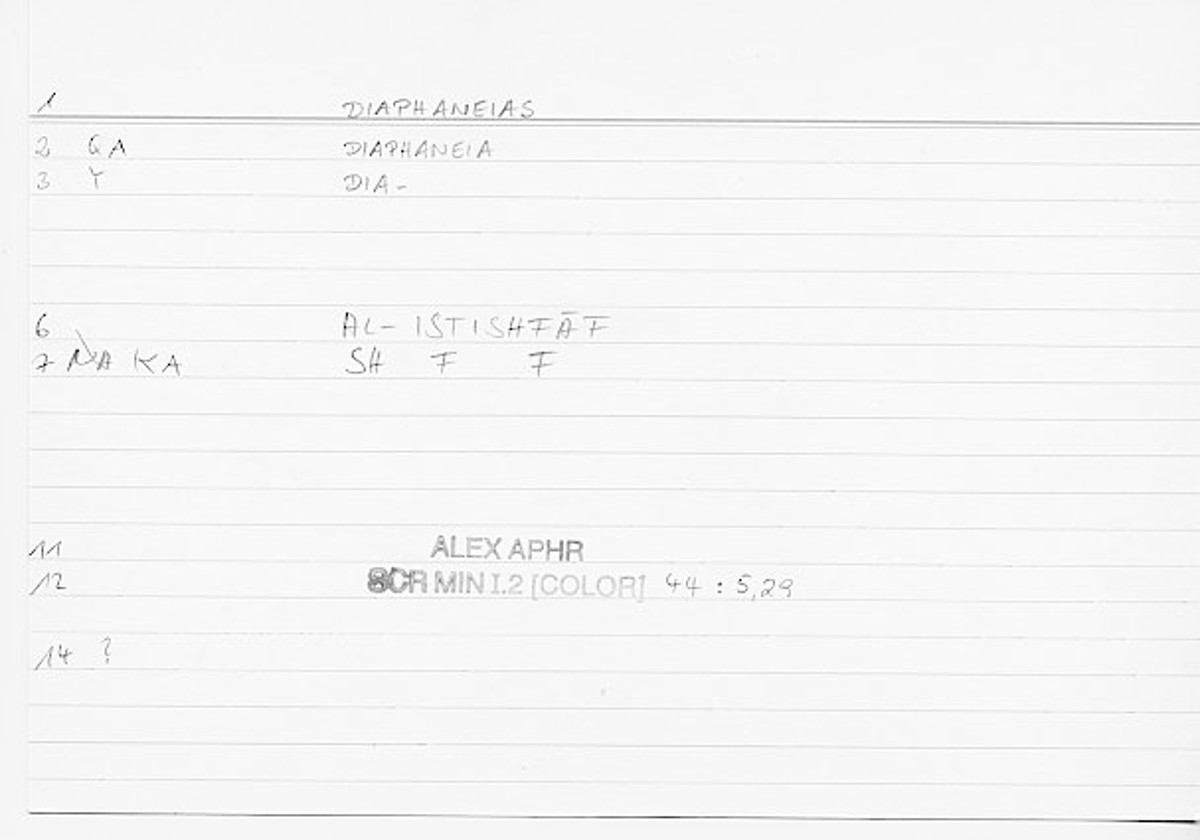 1 DIAPHANEIAS
2 GA DIAPHANEIA
3 Y DIA-
6 AL-ISTISHFĀF
7 NA KA SH F F
11 ALEX APHR
12 SCR MIN I.2 [COLOR] 44 : 5,29
14 ?